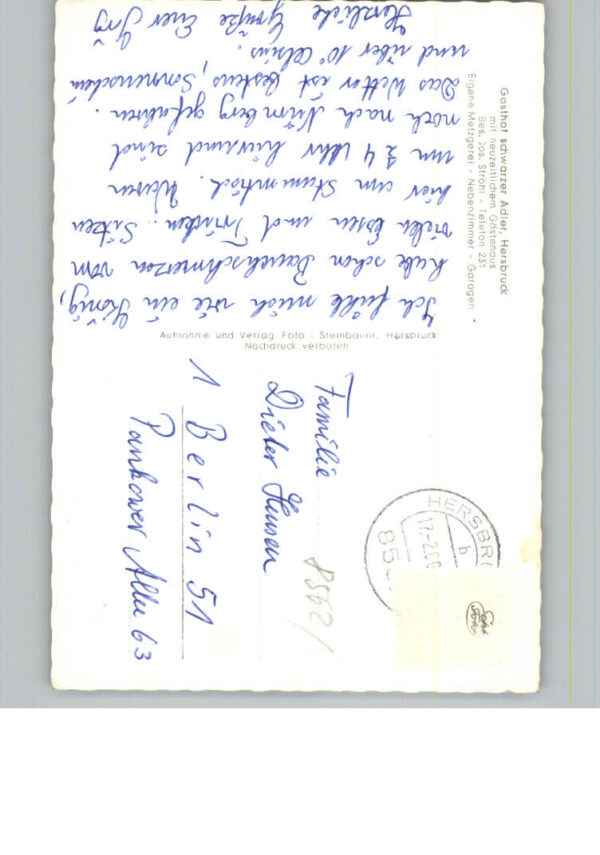 Gasthof schwarzer Adler, Hersbruck
mit neuzeitlichem Gästehaus
Bes. Jos. Ströhl - Telefon 231
Eigene Metzgerei - Nebenzimmer - Garagen
Ich fühle mich wie ein König,
habe schon Bauchschmerzen vom
vielen Essen und Trinken. Sitzen
hier am Stammtisch. Waren
um 1/2 4 Uhr hier und sind
noch nach Nürnberg gefahren.
Das Wetter ist bestens, Sonnenschein
und über 10° Celsius.
Herzliche Grüße Euer Jörg
Aufnahme und Verlag Foto - Steinbauer, Hersbruck
Nachdruck verboten
HERSBRU
17.-2.66
b
85
Familie
Dieter Hensen
1 Berlin 51
Pankower Allee 63
8562/